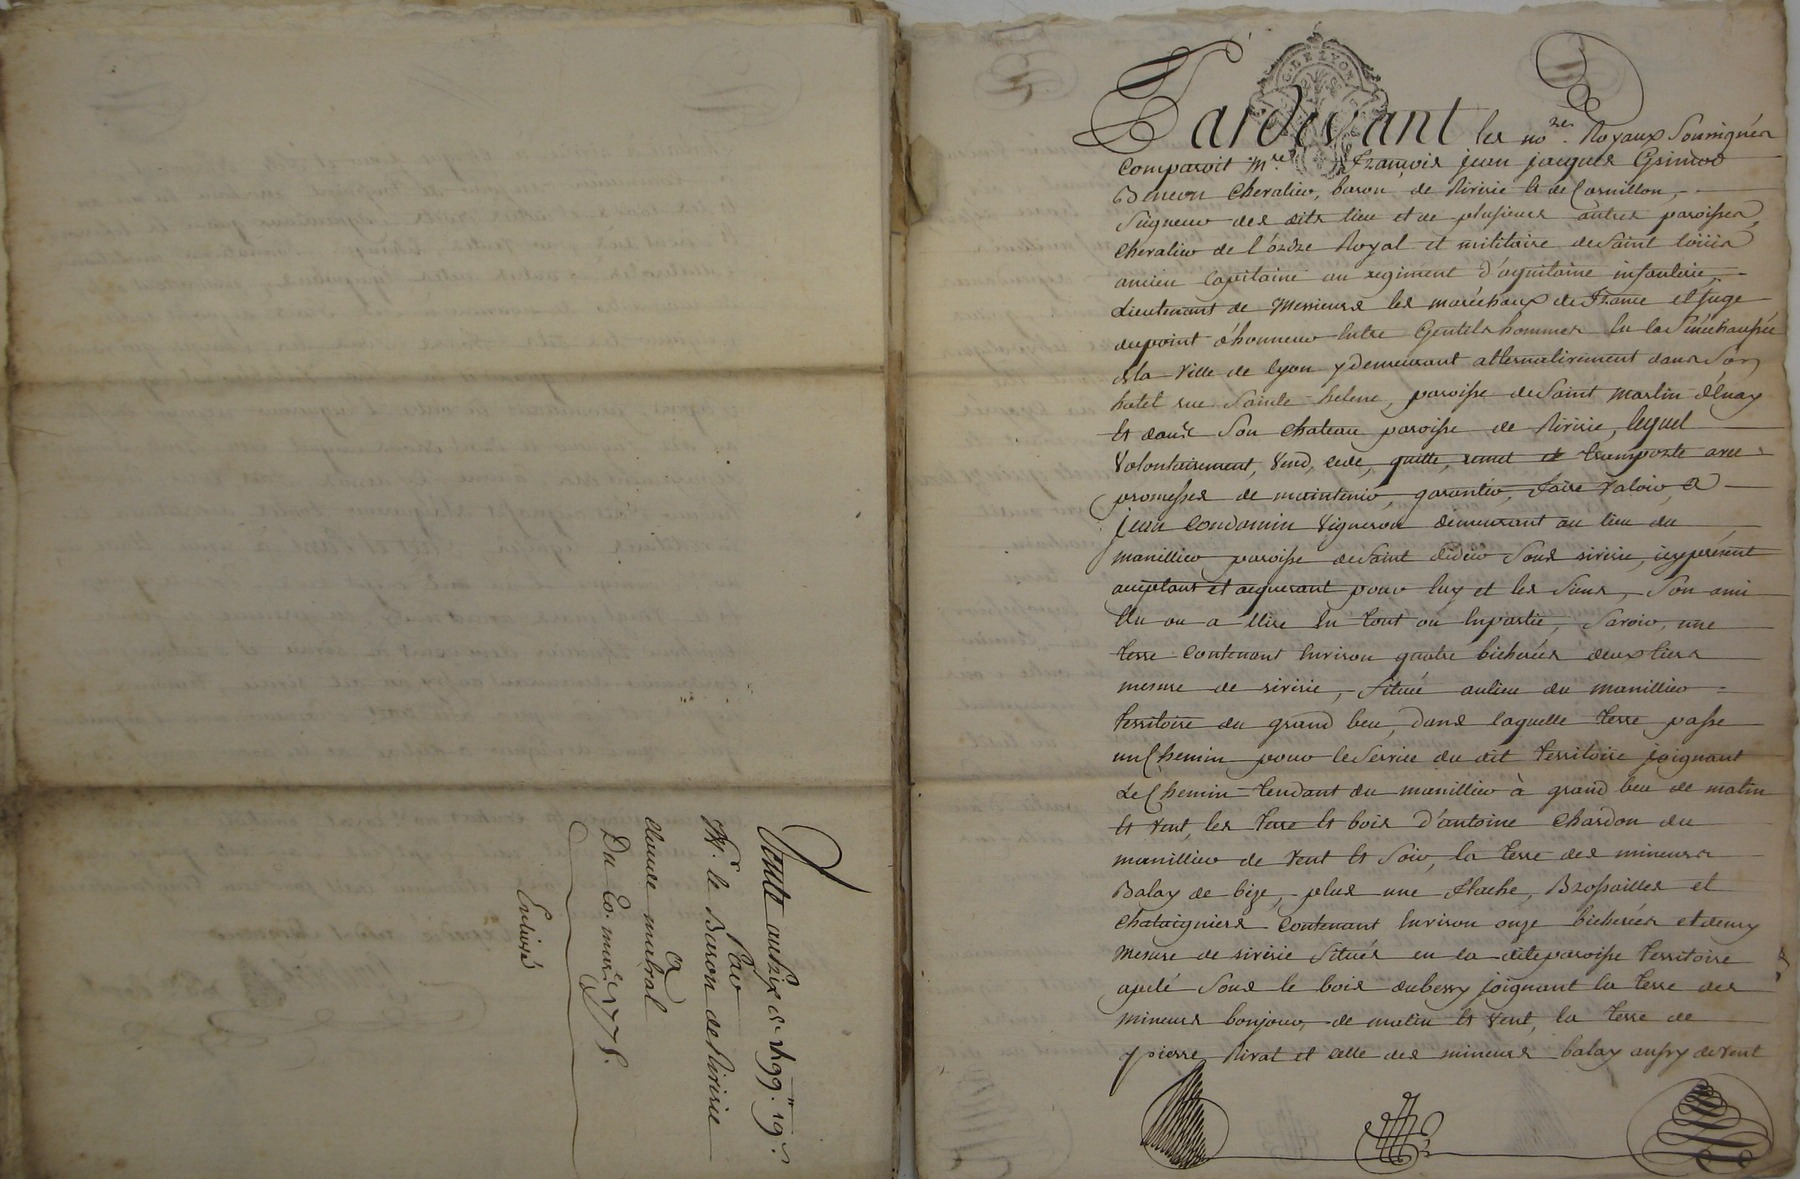 Vente au prix de 499.# 19.s
Par
Mr. le Baron de Rivirie
a
Claude matral
Du 20. mars 1778.
Enliassé
G. DE LYON
Pardevant les nores. Royaux Soussignés
Comparoit Mre. françois jean jacques Grimod
Beneon Chevalier, baron de Rivirie et de Cornillon,
Seigneur des dits lieu et de plusieurs autres paroisses,
Chevalier de l'ordre Royal et militaire de Saint loüis
ancien Capitaine au regiment d'aquitaine infanterie,
Lieutenant de Messieurs les maréchaux de france et juge
du point d'honneur entre Gentilshommes en la Sénéchaussée
de la ville de lyon y demeurant alternativement dans Son
hotel rue Sainte helene, paroisse de Saint martin d'Enay
et dans Son Chateau paroisse de Rivirie, lequel
volontairement, vend, cede, quitte, remet et transporte avec
promesses de maintenir, garantir, faire valoir, a
jean Condamin vigneron demeurant au lieu du
manillier paroisse de Saint didier Sous rivirie, icy présent
acceptant et acquerant pour luy et les Siens, Son ami
Elu ou a Elire En tout ou En partie, Savoir, une
terre Contenant Environ quatre bicherées deux tiers
mesure de rivirie, Situé au lieu du manillier
territoire du grand beu, dans laquelle terre passe
un Chemin pour le Service du dit territoire joignant
Le Chemin tendant du manillier à grand beu de matin
et vent, les terre et bois d'antoine Chardon du
manillier de vent et Soir, la terre des mineurs
Balay de bize, plus une flache, Brossailles et
Chataigniers Contenant Environ onze bicherées et demy
mesure de rivirie Situés en la dite paroisse territoire
apelé Sous le bois dubessy joignant la terre des
mineurs bonjour, de matin et vent, la terre de
pierre Rivat et celle des mineurs balay aussy de vent